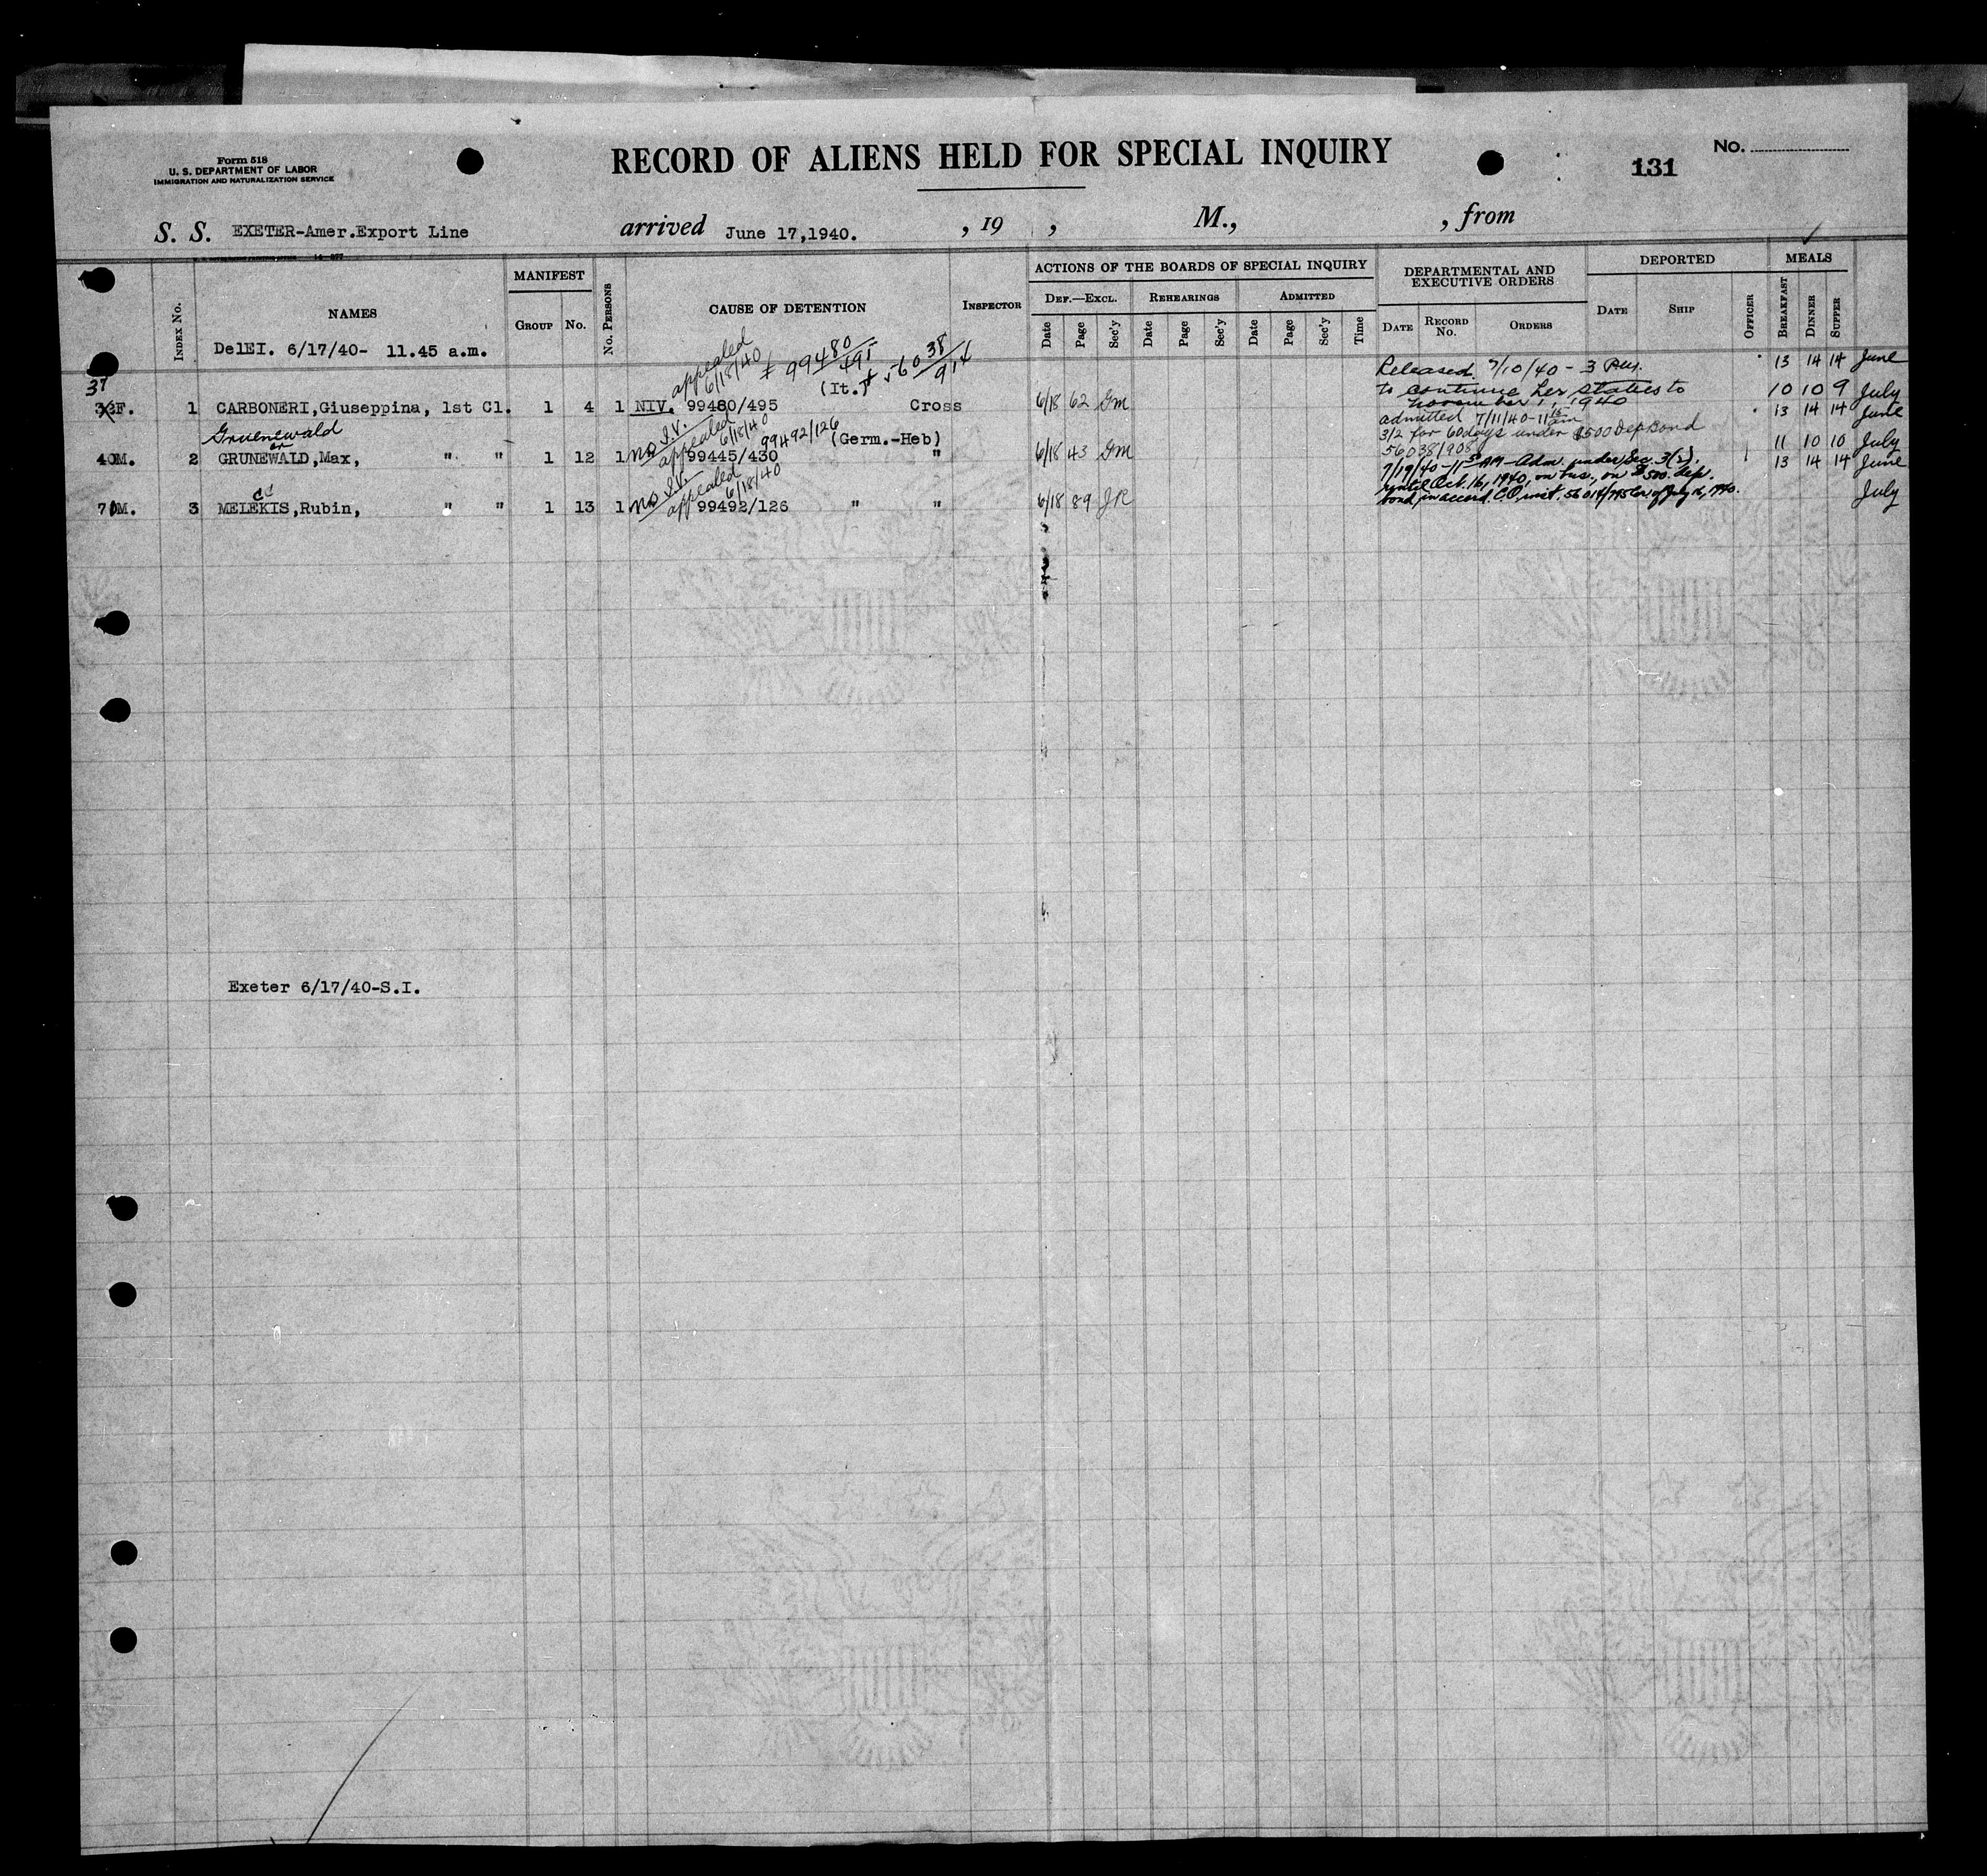 Form 518
U. S. DEPARTMENT OF LABOR
IMMIGRATION AND NATURALIZATION SERVICE
RECORD OF ALIENS HELD FOR SPECIAL INQUIRY
131
No.
S. S. EXETER-Amer.Export Line arrived June 17,1940. , 19 , M., , from
INDEX NO.
NAMES
MANIFEST
GROUP NO.
NO. PERSONS
CAUSE OF DETENTION
INSPECTOR
ACTIONS OF THE BOARDS OF SPECIAL INQUIRY
DEF.—EXCL. REHEARINGS ADMITTED
Date Page Sec'y Date Page Sec'y Date Page Sec'y Time
DEPARTMENTAL AND
EXECUTIVE ORDERS
DATE RECORD NO. ORDERS
DEPORTED
DATE SHIP OFFICER
MEALS
BREAKFAST DINNER SUPPER
DelEI. 6/17/40- 11.45 a.m.
appealed
6/18/40
99480/495
(It.)
Released 7/10/40 - 3 P.M.
13 14 14 June
37
F. 1 CARBONERI,Giuseppina, 1st Cl. 1 4 1 NIV. 99480/495 Cross 6/18 62 GM
to continue her status to
November 1, 1940
10 10 9 July
Gruenewald
or
no I.V.
appealed
6/18/40
99492/126
(Germ.-Heb)
admitted 7/11/40-11 15 am
3/2 for 60 days under $500 Dep Bond
56038/908
13 14 14 June
40M. 2 GRUNEWALD,Max, " " 1 12 1 99445/430 " 6/18 43 GM
11 10 10 July
no I.V.
appealed
6/18/40
7/19/40-11 5 AM-Adm. under Sec. 3(2).
until Oct. 16, 1940, on bus., on $500. dep.
bond, in accord. C.O. inst. of July 16, 1940.
13 14 14 June
M. 3 MELEKIS,Rubin, " " 1 13 1 99492/126 " " 6/18 89 JR
July
Exeter 6/17/40-S.I.